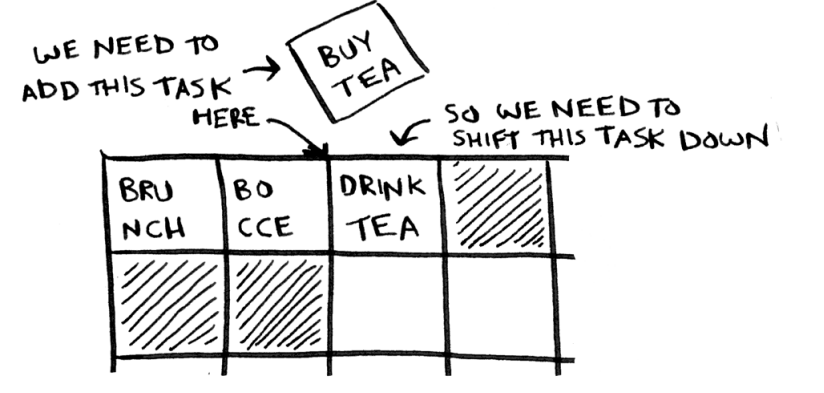 WE NEED TO
ADD THIS TASK
BUY
TEA
HERE
SO WE NEED TO
SHIFT THIS TASK DOWN
BRU
NCH
BO
CCE
DRINK
TEA